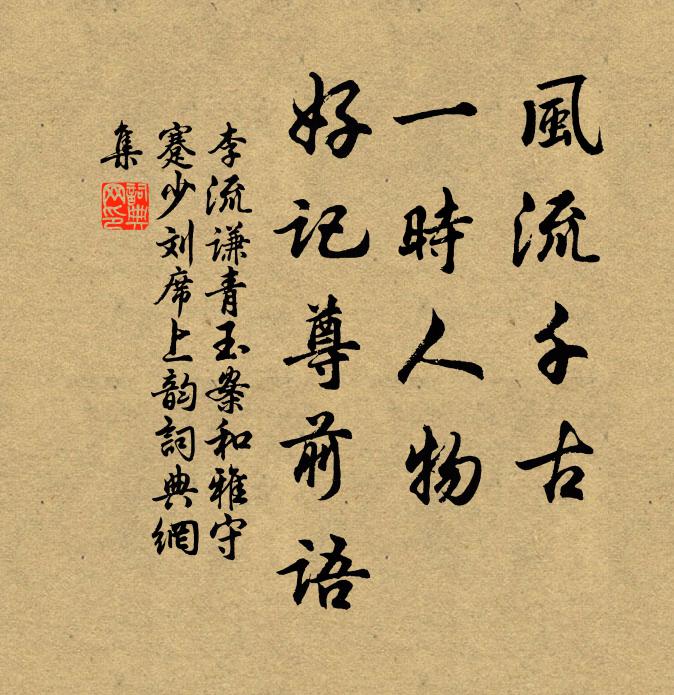 風流千古
一時人物
好記尊前語
李流谦青玉案和雅守
蹇少刘席上韵詞典網
集
詞典
网印